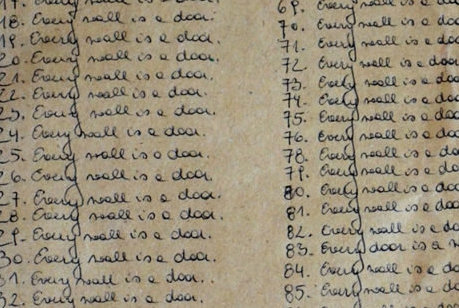 17. Every wall is a door.
18. Every wall is a door.
19. Every wall is a door.
20. Every wall is a door.
21. Every wall is a door.
22. Every wall is a door.
23. Every wall is a door.
24. Every wall is a door.
25. Every wall is a door.
26. Every wall is a door.
27. Every wall is a door.
28. Every wall is a door.
29. Every wall is a door.
30. Every wall is a door.
31. Every wall is a door.
32. Every wall is a door.
69. Every wall is a
70. Every wall is a
71. Every wall is a
72. Every wall is a
73. Every wall is a
74. Every wall is a
75. Every wall is a
76. Every wall is a
78. Every wall is a
79. Every wall is a
80. Every wall is a
81. Every wall is a
82. Every wall is a
83. Every door is a
84. Every wall is a
85. Every wall is a